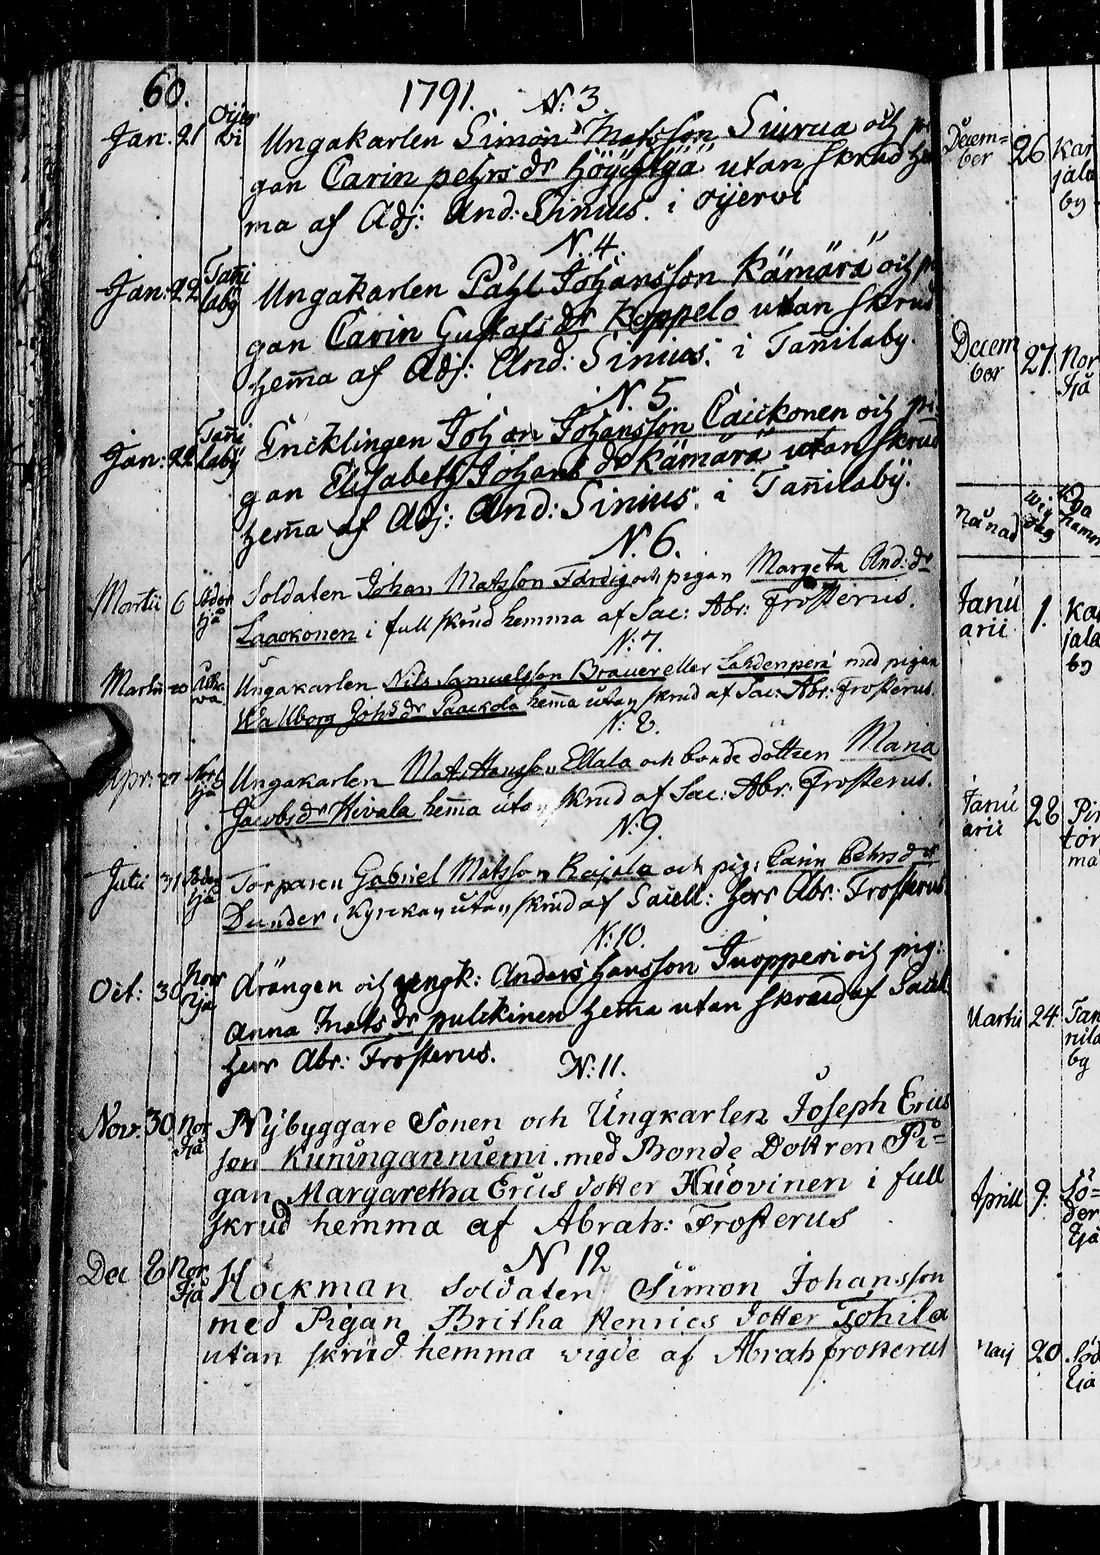 60.
1791. N: 3.
Jan: 21 Oijer
vi Ungakarlen Simon Matsson Siurua och pi
gan Carin pehrs dr Höyhtyä utan skrud hem
ma af Adj: And: Sinius. i oijervi
N. 4.
Jan: 22 Tañi
laby Ungakarlen Påhl Johansson Kämärä och pi
gan Carin Gustafs dr Koppelo utan skrud
hem̄a af Adj: And: Sinius. i Tañilaby.
N. 5.
Jan: 22 Tañi
laby Encklingen Johan Johansson Caickonen och pi
gan Elisabeth Johans dr Kämärä utan skrud
hem̄a af Adj: And: Sinius. i Tañilabÿ.
N. 6.
Martii 6 Söder
Ijå Soldaten Johan Matsson Färdig och pigan Margeta And: dr
Laaokonen i full skrud hemma af Sac: Abr: Frosterus
N: 7.
Martii 20 Ungakarlen Nils Samuelsson Brauer eller Lahdenperä med pigan
Wallborg Johs dr Paackola hem̄a utan skrud af Sac: Abr: Frosterus.
N: 8.
Apr: 27 Norr
Ijå Ungakarlen Mats Hansson Ellala och bonde dottren Maria
Jacobs dr Hivala hem̄a utan skrud af Sac: Abr: Frosterus.
N: 9.
Julii 31 Söder
Ijå Torparen Gabriel Matsson Rajala och pig: Carin Pehrs dr
Dunder i Kyrckan utan skrud af Sacell: herr Abr: Frosterus
N: 10.
Oct: 30 Norr
Ijå Drängen och yngk: Anders Hansson Tuopperi och pig:
Anna Mats dr pulckinen hem̄a utan skrud af Sacell
herr Abr: Frosterus.
N: 11.
Nov: 30 Nor
Ijå Nybyggare Sonen och Ungkarlen Joseph Erics
son Kuninganniemi. med Bonde Dottren Pi=
gan Margaretha Erics dotter Huovinen i full
skrud hemma af Abrah: Frosterus
N 12
Dec 8 Nor
Ijå Höckman Soldaten Simon Johansson
med Pigan Britha Henrics dotter Tohila
utan skrud hemma vigde af Abrah frosterus
Decem=
ber 26 Kar
jala
by
Decem
ber 27. Nor
Ijå
Månad Wij
Dag
Namn
Janu
arii 1. Kar
jala
by
Janu
arii 28
Martii 24. Tan
nila
by
Aprill 9. Sö=
der
Ijå
Maij 20. Söd
Ijå